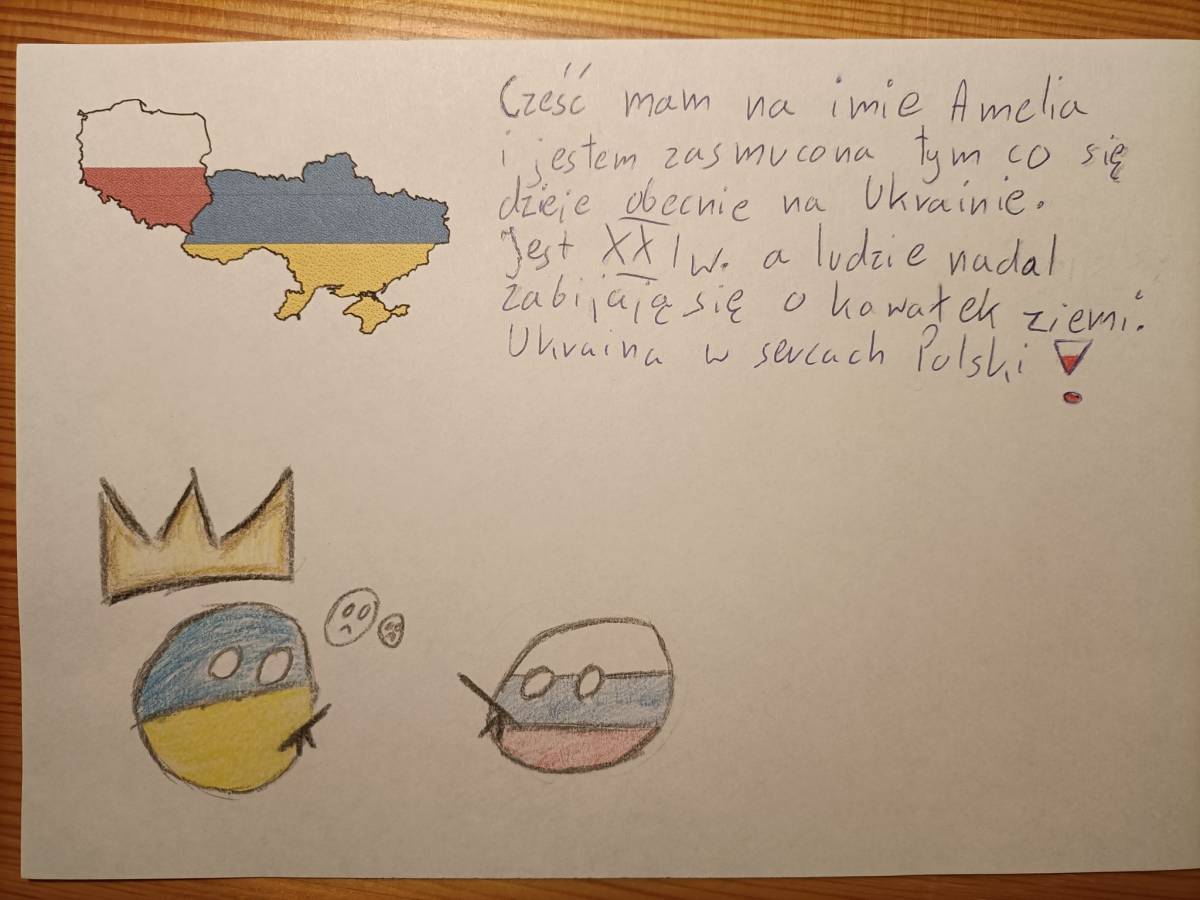 Cześć mam na imie Amelia
i jestem zasmucona tym co się
dzieje obecnie na Ukrainie.
Jest XXI w. a ludzie nadal
zabijają się o kawałek ziemi.
Ukraina w sercach Polski!